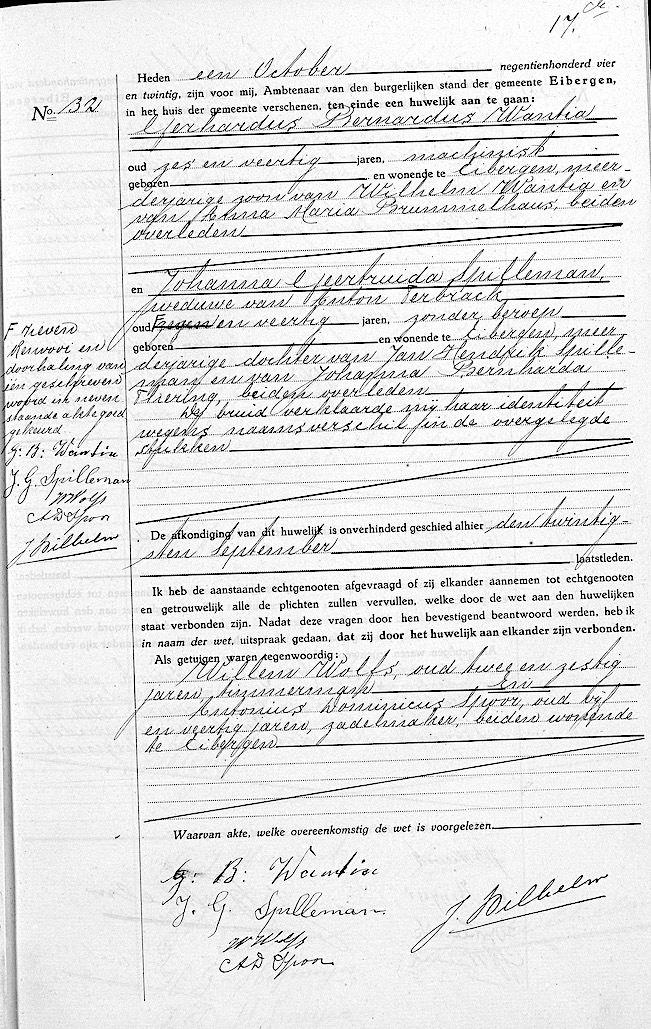 17.
Heden een October negentienhonderd vier
en twintig, zijn voor mij, Ambtenaar van den burgerlijken stand der gemeente Eibergen,
in het huis der gemeente verschenen, ten einde een huwelijk aan te gaan:
No. 132
Gerhardus Bernardus Wantia
oud zes en veertig jaren, machinist
geboren en wonende te Eibergen, meer-
derjarige zoon van Wilhelm Wantia en
van Anna Maria Brummelhaus, beiden
overleden
en Johanna Geertruida Spilleman,
weduwe van Anton Terbrack
oud F en veertig jaren, zonder beroep
geboren en wonende te Eibergen, meer
derjarige dochter van Jan Hendrik Spille-
man en van Johanna Bernharda
Thering, beiden overleden
De bruid verklaarde mij haar identiteit
wegens naamsverschil in de overgelegde
stukken
F zeven
Renvooi en
doorhaling van
een geschreven
woord in neven
staande akte goed
gekeurd
G: B: Wantia
J. G. Spilleman
W Wolfs
A D Spoor
J Wilhelm
De afkondiging van dit huwelijk is onverhinderd geschied alhier den twintig-
sten September
laatstleden.
Ik heb de aanstaande echtgenooten afgevraagd of zij elkander aannemen tot echtgenooten
en getrouwelijk alle de plichten zullen vervullen, welke door de wet aan den huwelijken
staat verbonden zijn. Nadat deze vragen door hen bevestigend beantwoord werden, heb ik
in naam der wet, uitspraak gedaan, dat zij door het huwelijk aan elkander zijn verbonden.
Als getuigen waren tegenwoordig:
Willem Wolfs, oud twee en zestig
jaren timmerman En
Antonius Dominicus Spoor, oud vijf
en veertig jaren, zadelmaker, beiden wonende
te Eibergen
Waarvan akte, welke overeenkomstig de wet is voorgelezen
G: B: Wantia
J. G. Spilleman
W Wolfs
A D Spoor
J. Wilhelm